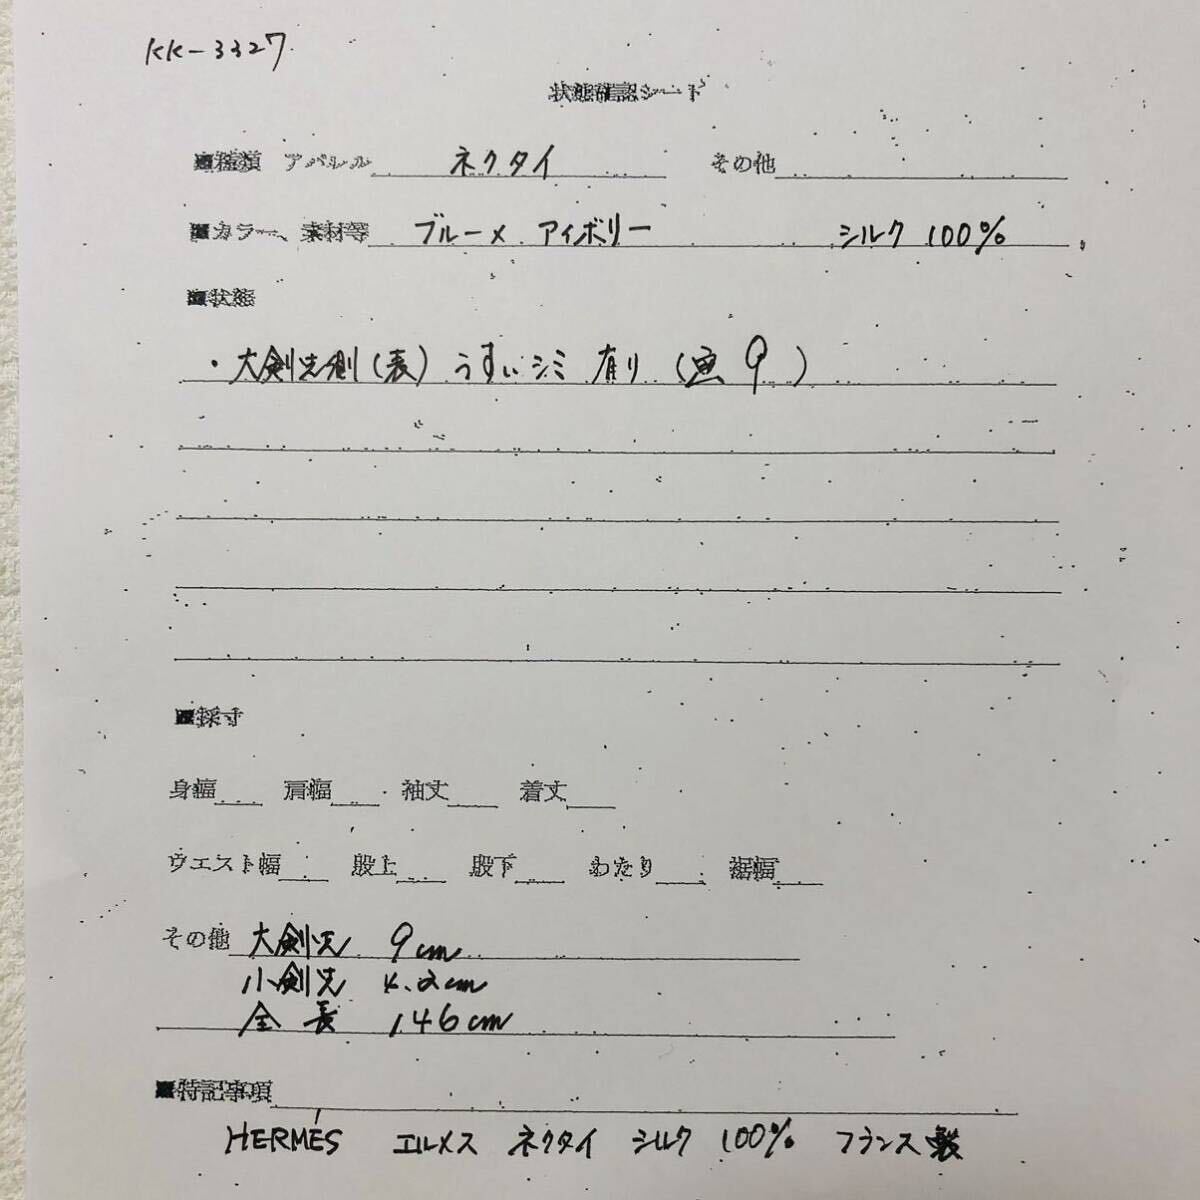 KK-3327
状態確認シート
■種類 アパレル ネクタイ その他
■カラー、素材等 ブルーメ アイボリー シルク 100%
■状態
・大剣先側(表) うすいシミ 有り (画 9)
■採寸
身幅 肩幅 袖丈 着丈
ウエスト幅 股上 股下 わたり 裾幅
その他 大剣先 9cm
小剣先 4.2cm
全長 146cm
■特記事項
HERMÈS エルメス ネクタイ シルク 100% フランス製